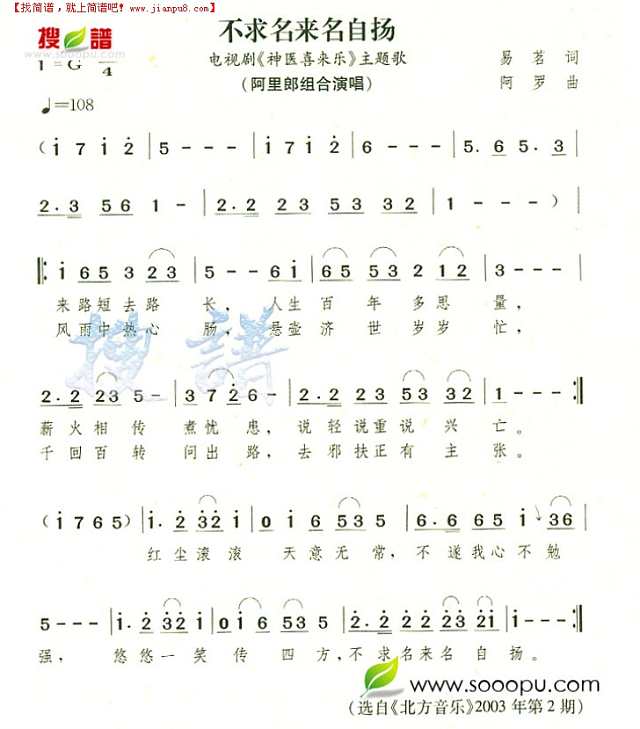 【找简谱，就上简谱吧！】www.jianpu8.com
搜谱
不求名来名自扬
1=G 4
电视剧《神医喜来乐》主题歌 易茗 词
(阿里郎组合演唱) 阿罗 曲
♩=108
(i 7 i 2 | 5 - - - | i 7 i 2 | 6 - - - | 5. 6 5. 3 |
2. 3 5 6 1 - | 2. 2 2 3 5 3 3 2 | 1 - - - ) |
‖: i 6 5 3 2 3 | 5 - - 6 i | 6 5 5 3 2 2 1 2 | 3 - - - |
来路短去路 长， 人生 百 年 多思 量，
风雨中热心 肠， 悬壶 济 世 岁岁 忙，
2. 2 2 3 5 - | 3 7 2 6 - | 2. 2 2 3 5 3 3 2 | 1 - - - :‖
薪火相传 煮忧 患， 说轻说重说 兴 亡。
千回百转 问出 路， 去邪扶正有 主 张。
(i 7 6 5) | i. 2 3 2 i | 0 i 6 5 3 5 | 6. 6 6 5 i 3 6 |
红尘滚滚 天意无常，不遂我心不勉
5 - - - | i. 2 3 2 i | 0 i 2 3 2 i | 2. 2 2 2 3 2 2 | i - - - :‖
强， 悠悠一笑传 四方，不求名来名 自 扬。
www.sooopu.com
(选自《北方音乐》2003年第2期)